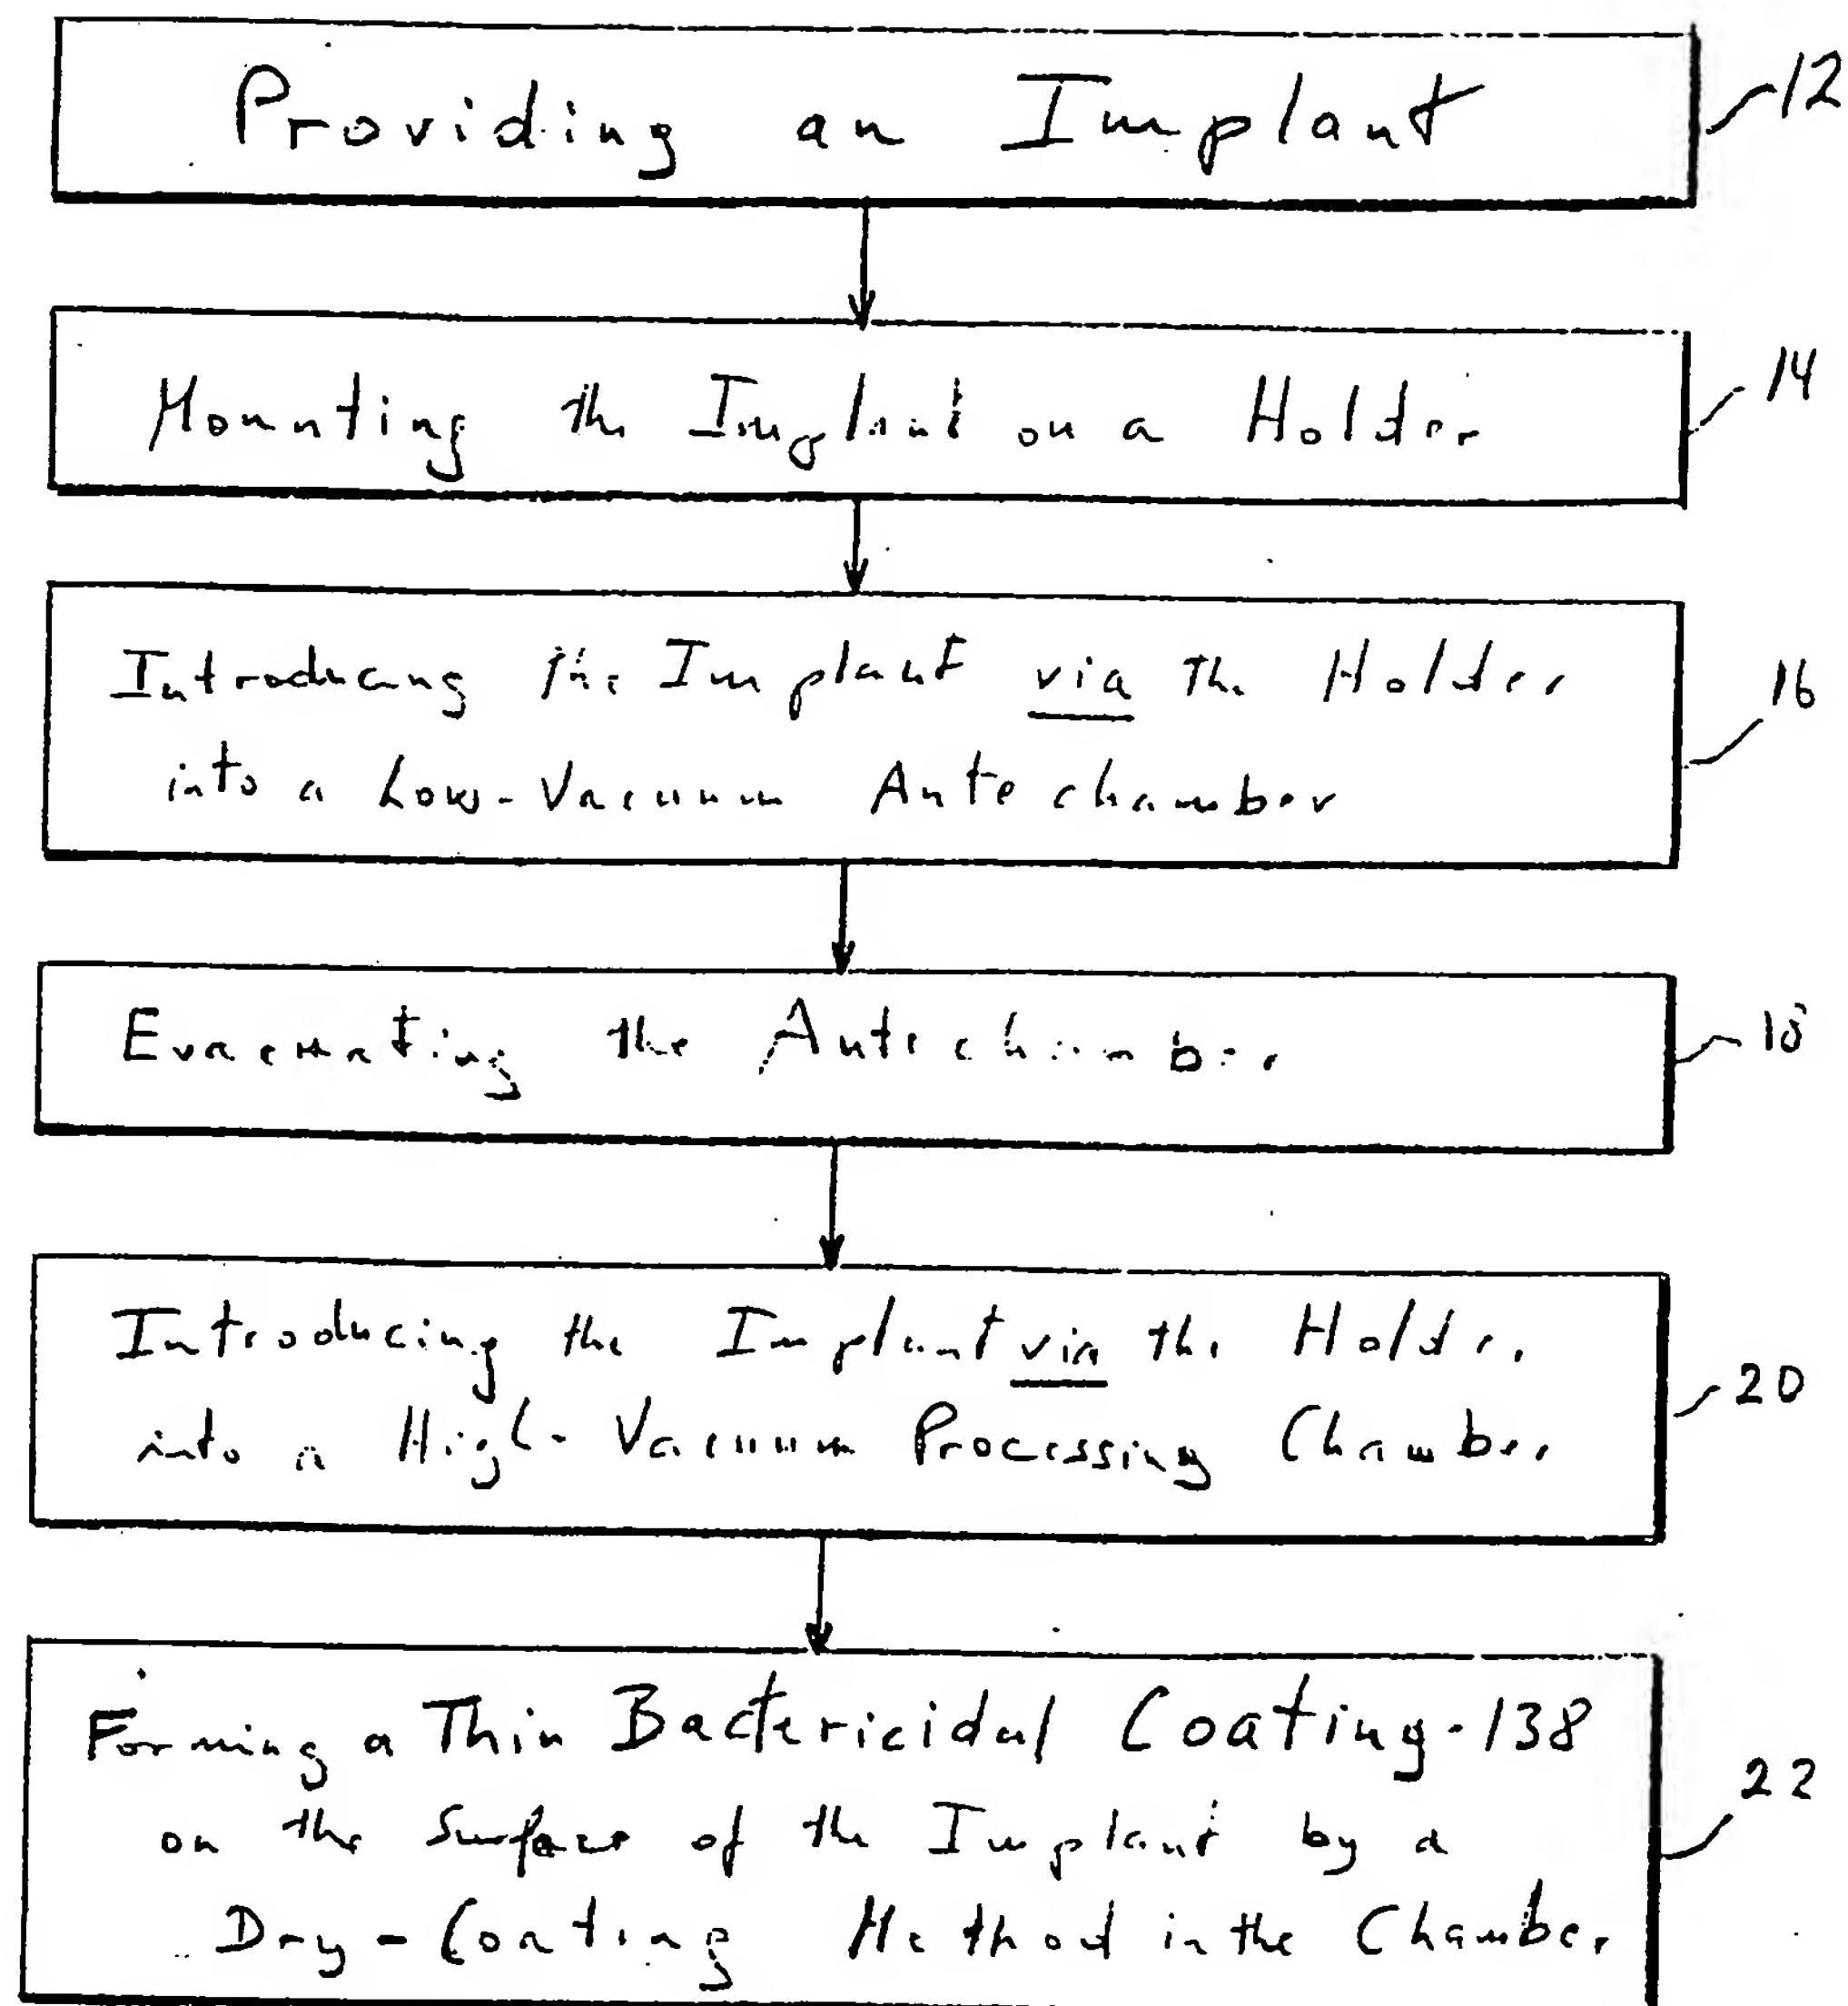 Providing an Implant
12
Mounting the Implant on a Holder
14
Introducing the Implant via the Holder
into a Low-Vacuum Antechamber
16
Evacuating the Antechamber
18
Introducing the Implant via the Holder
into a High-Vacuum Processing Chamber
20
Forming a Thin Bactericidal Coating-138
on the Surface of the Implant by a
Dry-Coating Method in the Chamber
22